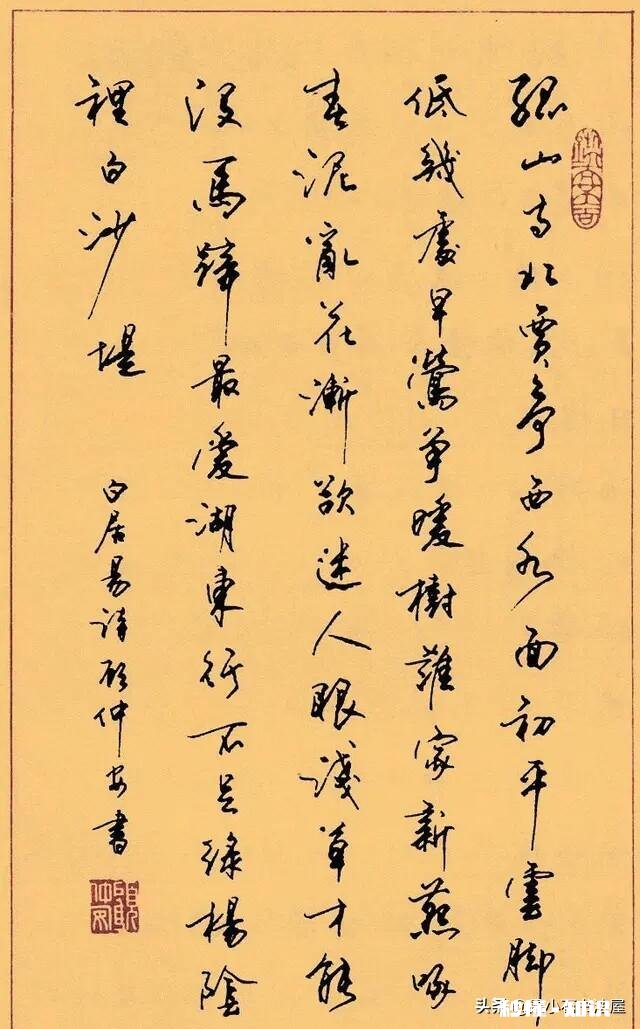 孤山寺北賈亭西水面初平雲脚
低幾處早鶯爭暖樹誰家新燕啄
春泥亂花漸欲迷人眼淺草才能
沒馬蹄最愛湖東行不足綠楊陰
裡白沙堤
白居易詩顧仲安書
顧仲安
头条